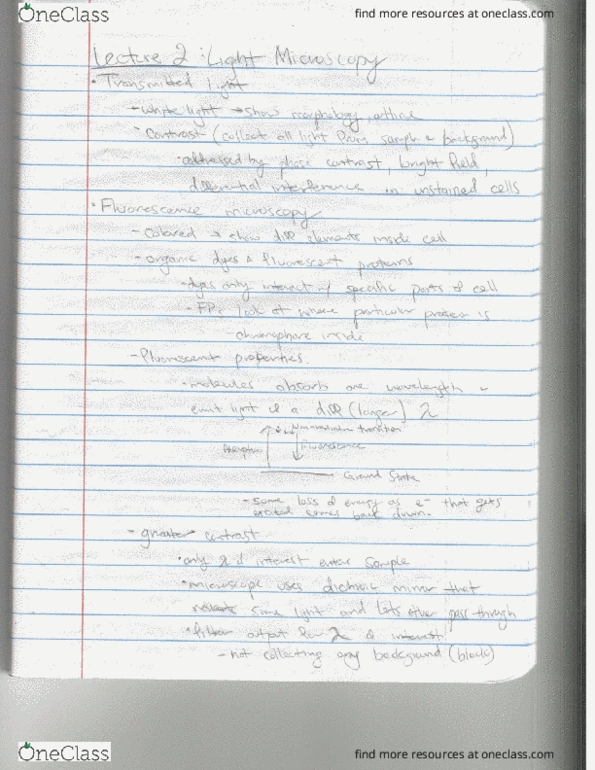 OneClass
find more resources at oneclass.com
Lecture 2: Light Microscopy
• Transmitted light
- white light → show morphology, outline
- Contrast (collect all light from sample & background)
• addressed by phase contrast, bright field,
differential interference in unstained cells
• Fluorescence microscopy
- colored → show diff elements inside cell
- organic dyes & fluorescent proteins
• dyes only interact w/ specific parts of cell
- FPs look at where particular protein is
- chromophore inside
- fluorescent properties
• molecules absorb one wavelength &
emit light of a diff (larger) λ
transition
Absorption
fluorescence
Ground State
- some loss of energy as e- that gets
excited comes back down.
- greater contrast
• only λ of interest enter sample
• microscope uses dichroic mirror that
reflects some light and lets other pass through
• filter output for λ of interest
- not collecting any background (black)
OneClass
find more resources at oneclass.com